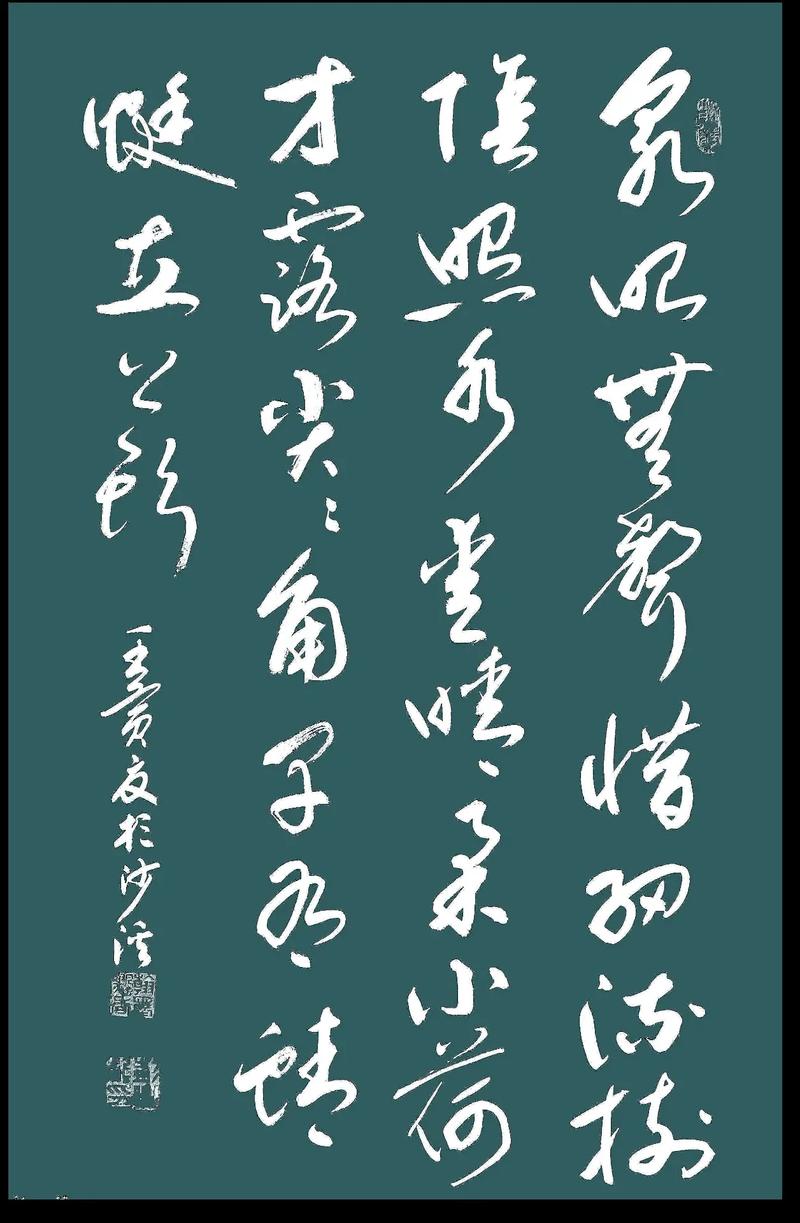 泉眼無聲惜細流樹
陰照水愛晴柔小荷
才露尖尖角早有蜻
蜓立上頭
壬寅夏於沙溪